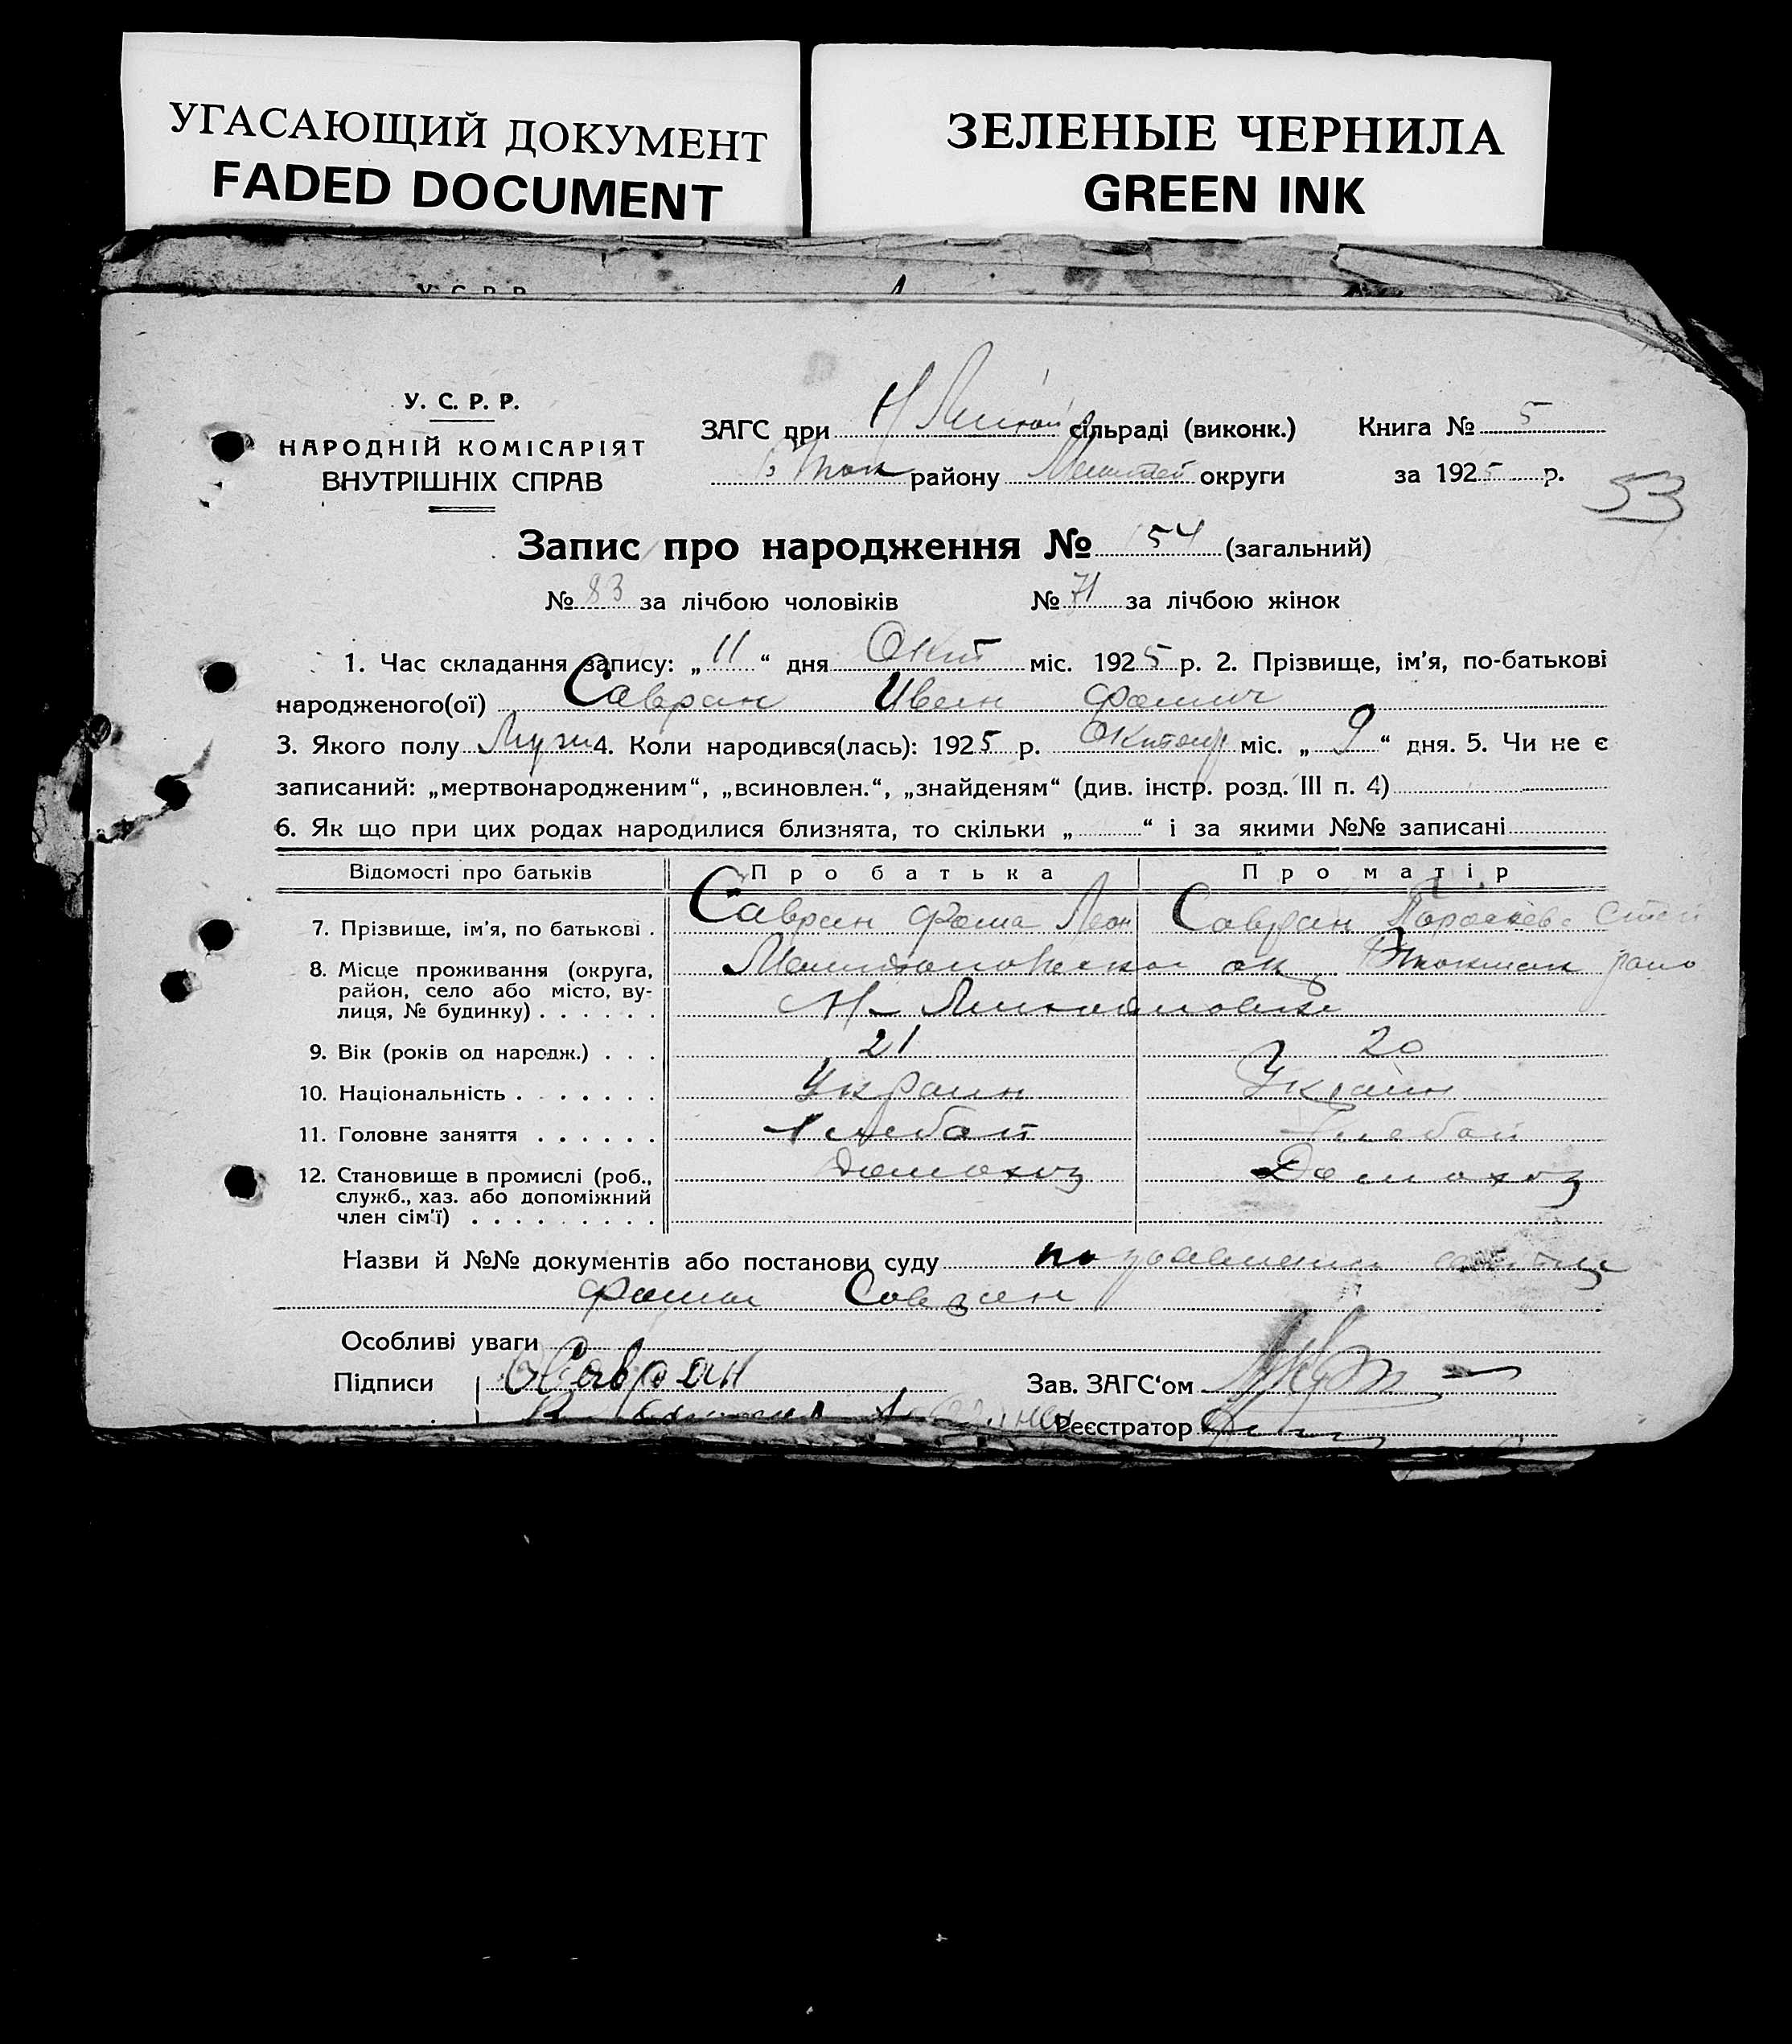 УГАСАЮЩИЙ ДОКУМЕНТ
FADED DOCUMENT
ЗЕЛЕНЫЕ ЧЕРНИЛА
GREEN INK
У. С. Р. Р.
У. С. Р. Р.
НАРОДНІЙ КОМІСАРІЯТ
ВНУТРІШНІХ СПРАВ
ЗАГС при Н сільраді (виконк.) Книга № 5
Б Ток району округи за 1925 р.
53
Запис про народження № 154 (загальний)
№ 83 за лічбою чоловіків № 71 за лічбою жінок
1. Час складання запису: „ 11 “ дня Окт міс. 1925 р. 2. Прізвище, ім'я, по-батькові
народженого(ої) Савран Иван Фомич
3. Якого полу Муж 4. Коли народився(лась): 1925 р. Октябр міс. „ 9 “ дня. 5. Чи не є
записаний: „мертвонародженим“, „всиновлен.“, „знайденям“ (див. інстр. розд. III п. 4)
6. Як що при цих родах народилися близнята, то скільки „ “ і за якими №№ записані
Відомості про батьків Про батька Про матір
7. Прізвище, ім'я, по батькові . Савран Фома Леон Савран Параскева Степ
8. Місце проживання (округа, Мелитопольской ок Б Токмак райо
район, село або місто, ву-
лиця, № будинку) . . . . . . Н-
9. Вік (років од народж.) . . . 21 20
10. Національність . . . . . . . Украин Украин
11. Головне заняття . . . . . . Хлебоп Хлебоп
12. Становище в промислі (роб., Домохоз Домохоз
служб., хаз. або допоміжний
член сім'ї) . . . . . . . . .
Назви й №№ документів або постанови суду по заявлению отца
Фомы Савран
Особливі уваги
Підписи Савран Зав. ЗАГС‘ом
Реєстратор